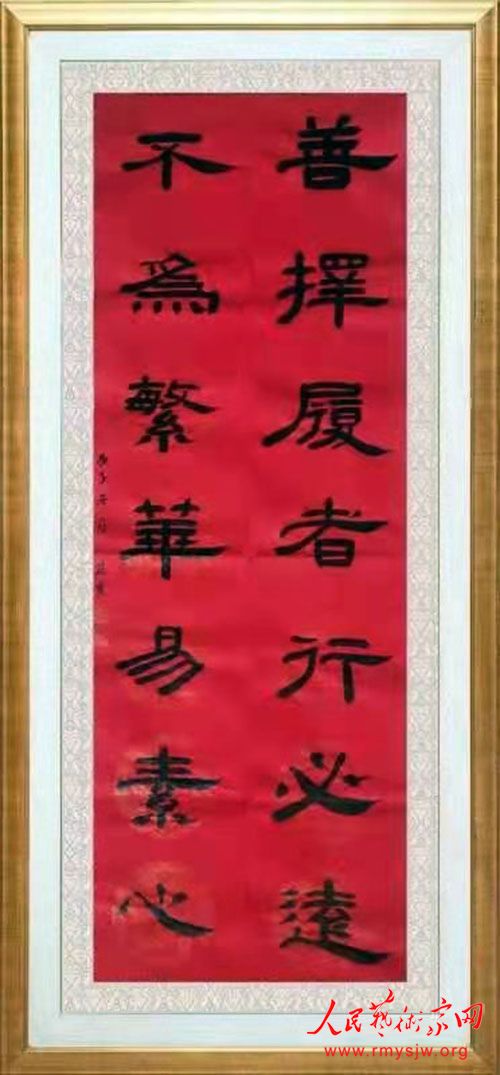 善擇履者行必遠
不為繁華易素心
人民藝術家网
www.rmysjw.org